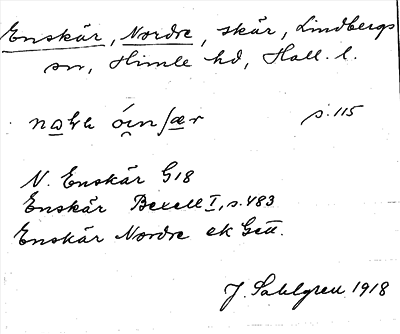 Enskär, Nordre, skär, Lindbergs
sn, Himle hd, Hall. l.
s. 115
N. Enskär G18
Enskär Bexell I, s. 483
Enskär Nordre ek
J. Sahlgren 1918